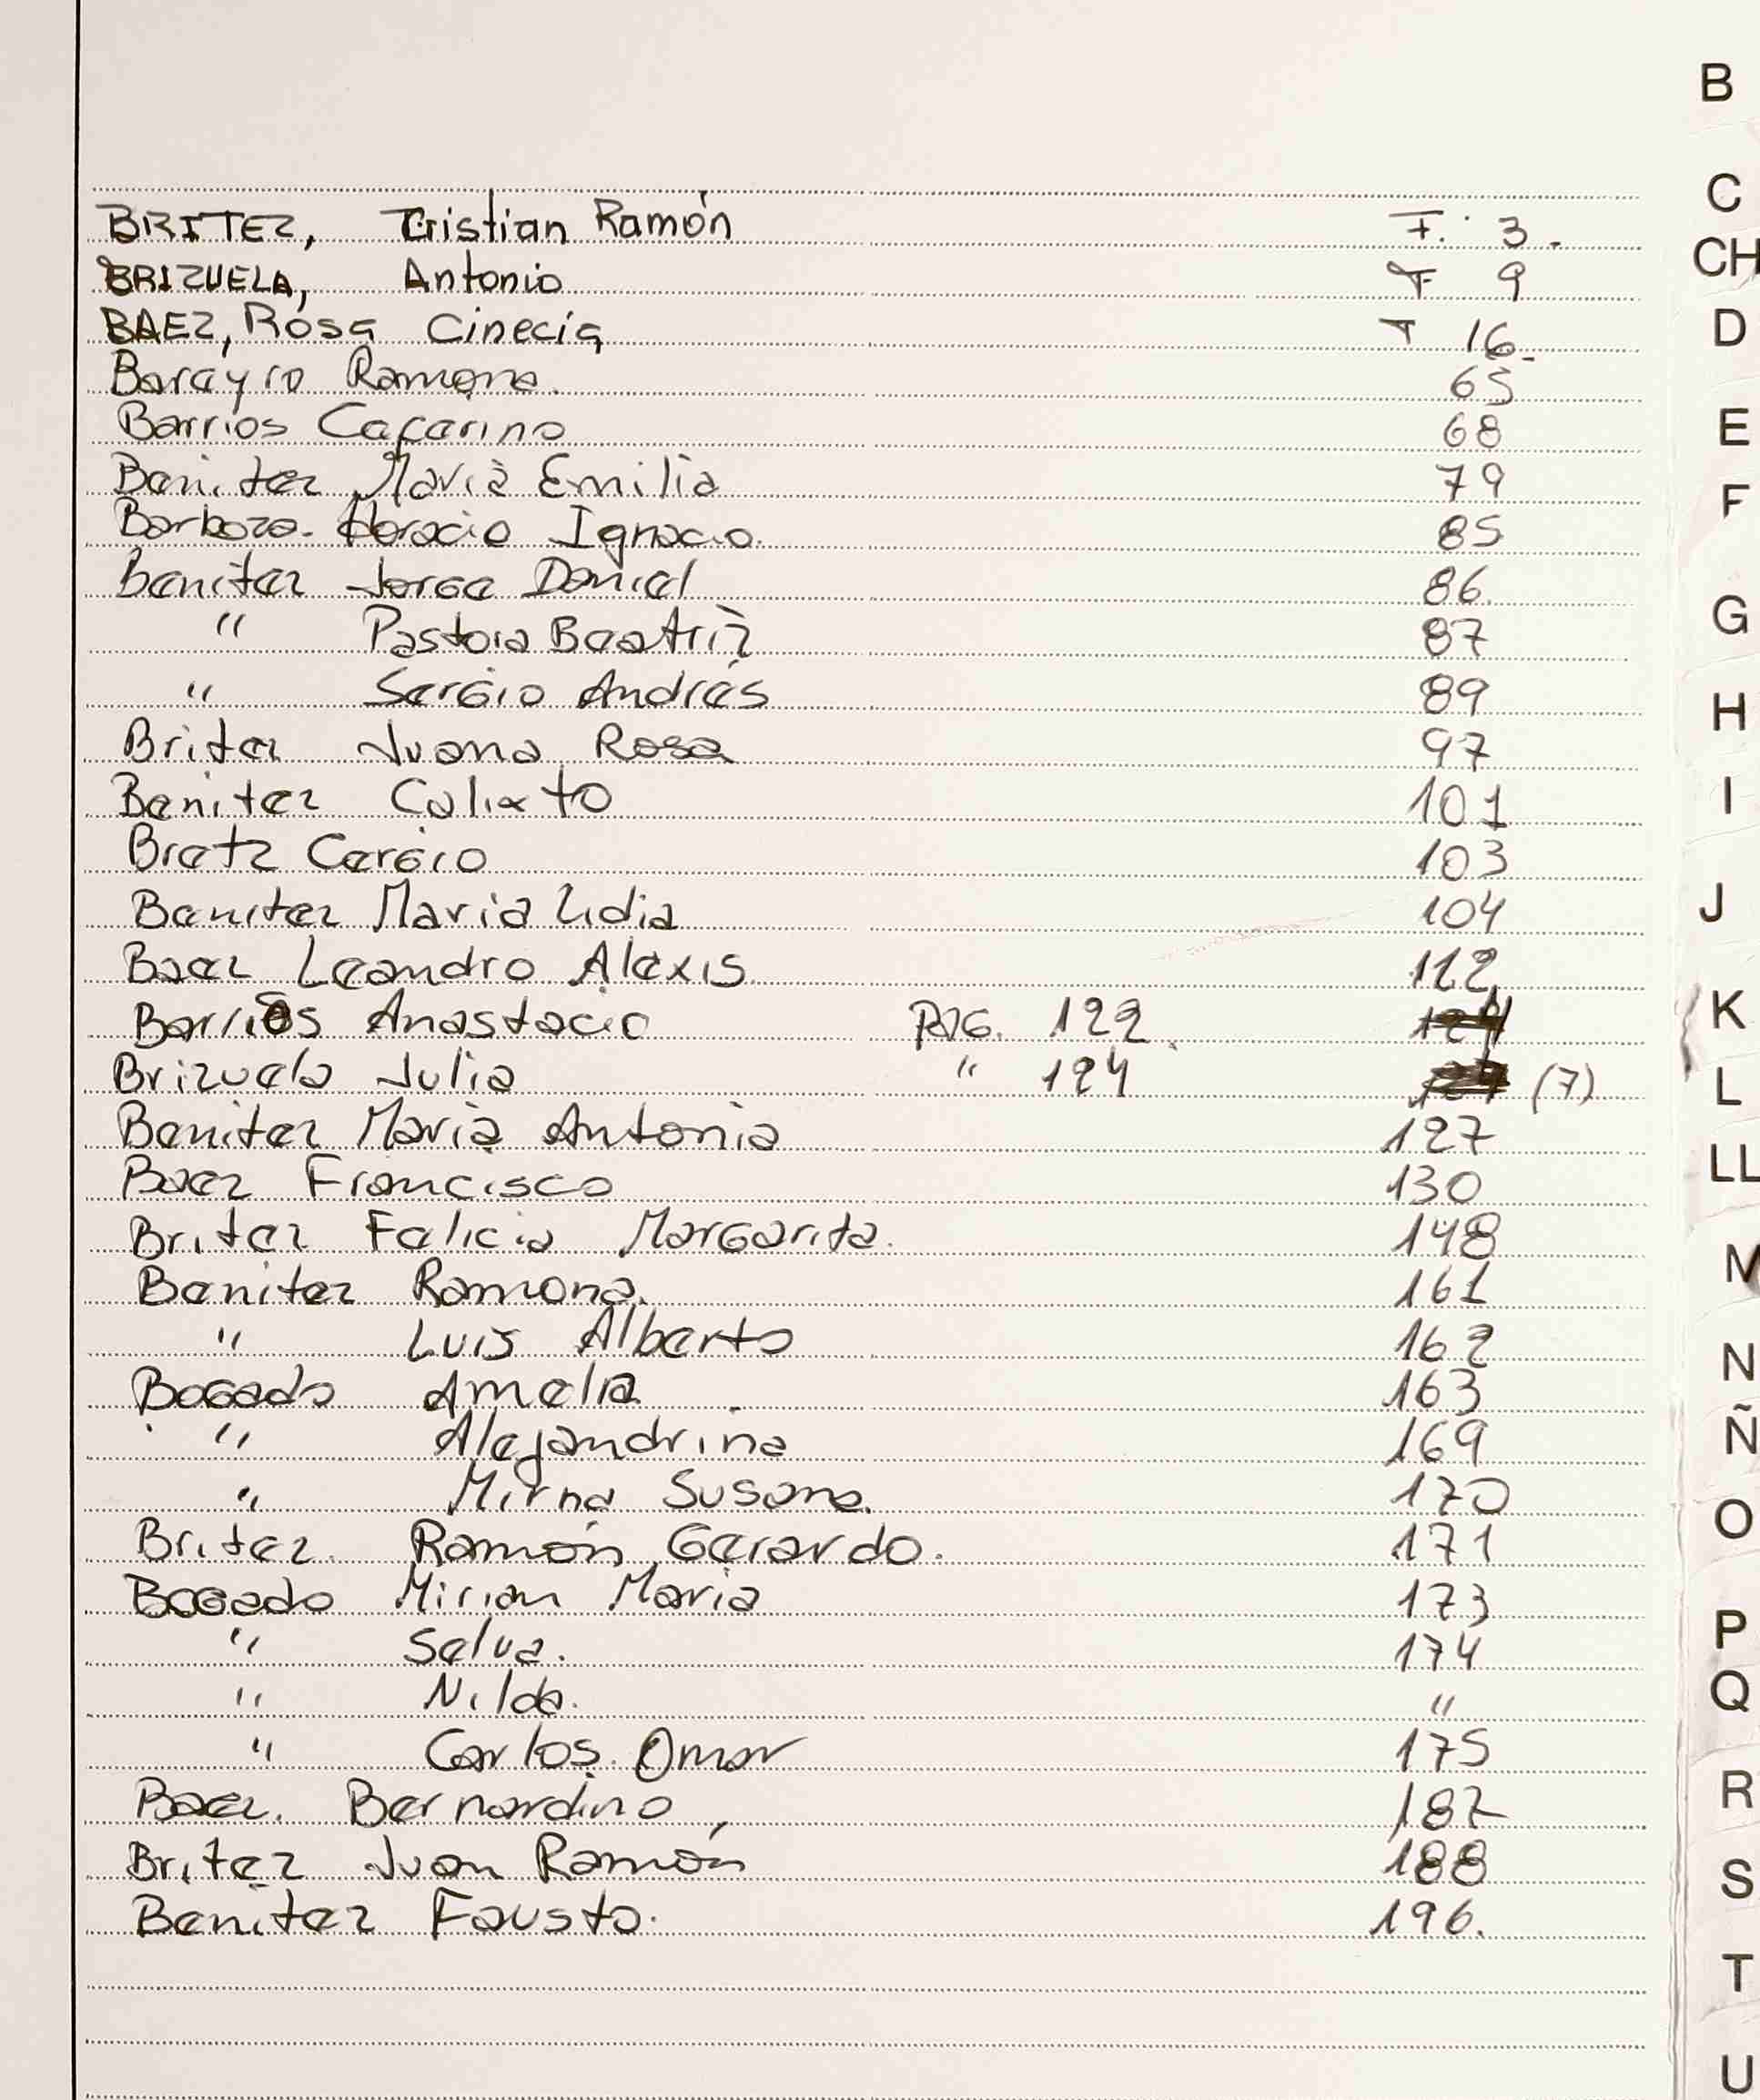 BRITEZ, Cristian Ramón F. 3.
BRIZUELA, Antonio F 9
BAEZ, Rosa Cinecia F 16.
Barayro Ramona. 65
Barrios Caferino 68
Benitez Maria Emilia 79
Barboza. Horacio Ignacio. 85
Benitez Jorge Daniel 86.
" Pastora Beatriz 87
" Sergio Andrés 89
Britez Juana Rosa 97
Benitez Calixto 101
Bretz Cergio 103
Benitez Maria Lidia 104
Baez Leandro Alexis. 112
Barrios Anastacio PAG. 122.
Brizuela Julia " 124 (7)
Benitez Maria Antonia 127
Baez Francisco 130
Britez Felicia Margarita. 148
Benitez Ramona. 161
" Luis Alberto 162
Bogado Amelia 163
" Alejandrina 169
" Mirna Susana. 170
Britez. Ramón Gerardo. 171
Bogado Mirian Maria 173
" Selva. 174
" Nilda. "
" Carlos. Omar 175
Baez. Bernardino 187
Britez Juan Ramón 188
Benitez Fausto. 196.
B
C
CH
D
E
F
G
H
I
J
K
L
LL
M
N
Ñ
O
P
Q
R
S
T
U